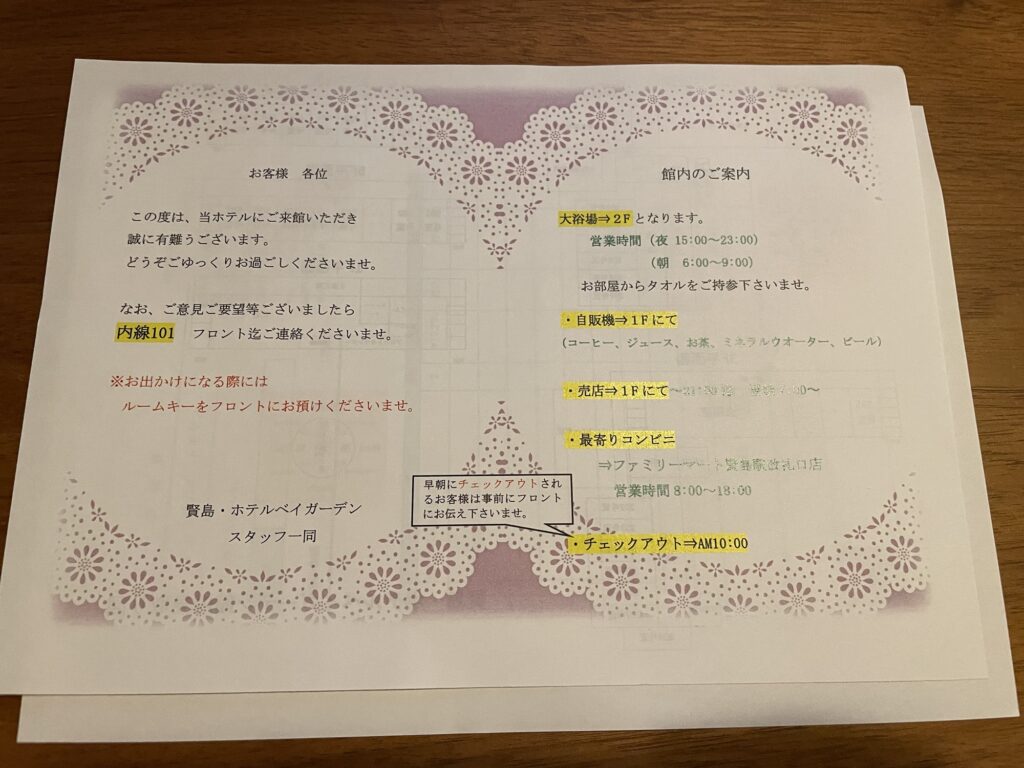 お客様 各位
この度は、当ホテルにご来館いただき
誠に有難うございます。
どうぞごゆっくりお過ごしくださいませ。
なお、ご意見ご要望等ございましたら
内線101 フロント迄ご連絡くださいませ。
※お出かけになる際には
ルームキーをフロントにお預けくださいませ。
賢島・ホテルベイガーデン
スタッフ一同
館内のご案内
大浴場⇒2Fとなります。
営業時間(夜 15:00～23:00)
(朝 6:00～9:00)
お部屋からタオルをご持参下さいませ。
・自販機⇒1Fにて
(コーヒー、ジュース、お茶、ミネラルウオーター、ビール)
・売店⇒1Fにて
・最寄りコンビニ
⇒ファミリーマート賢島駅改札口店
営業時間8:00～18:00
早朝にチェックアウトされ
るお客様は事前にフロント
にお伝え下さいませ。
・チェックアウト⇒AM10:00